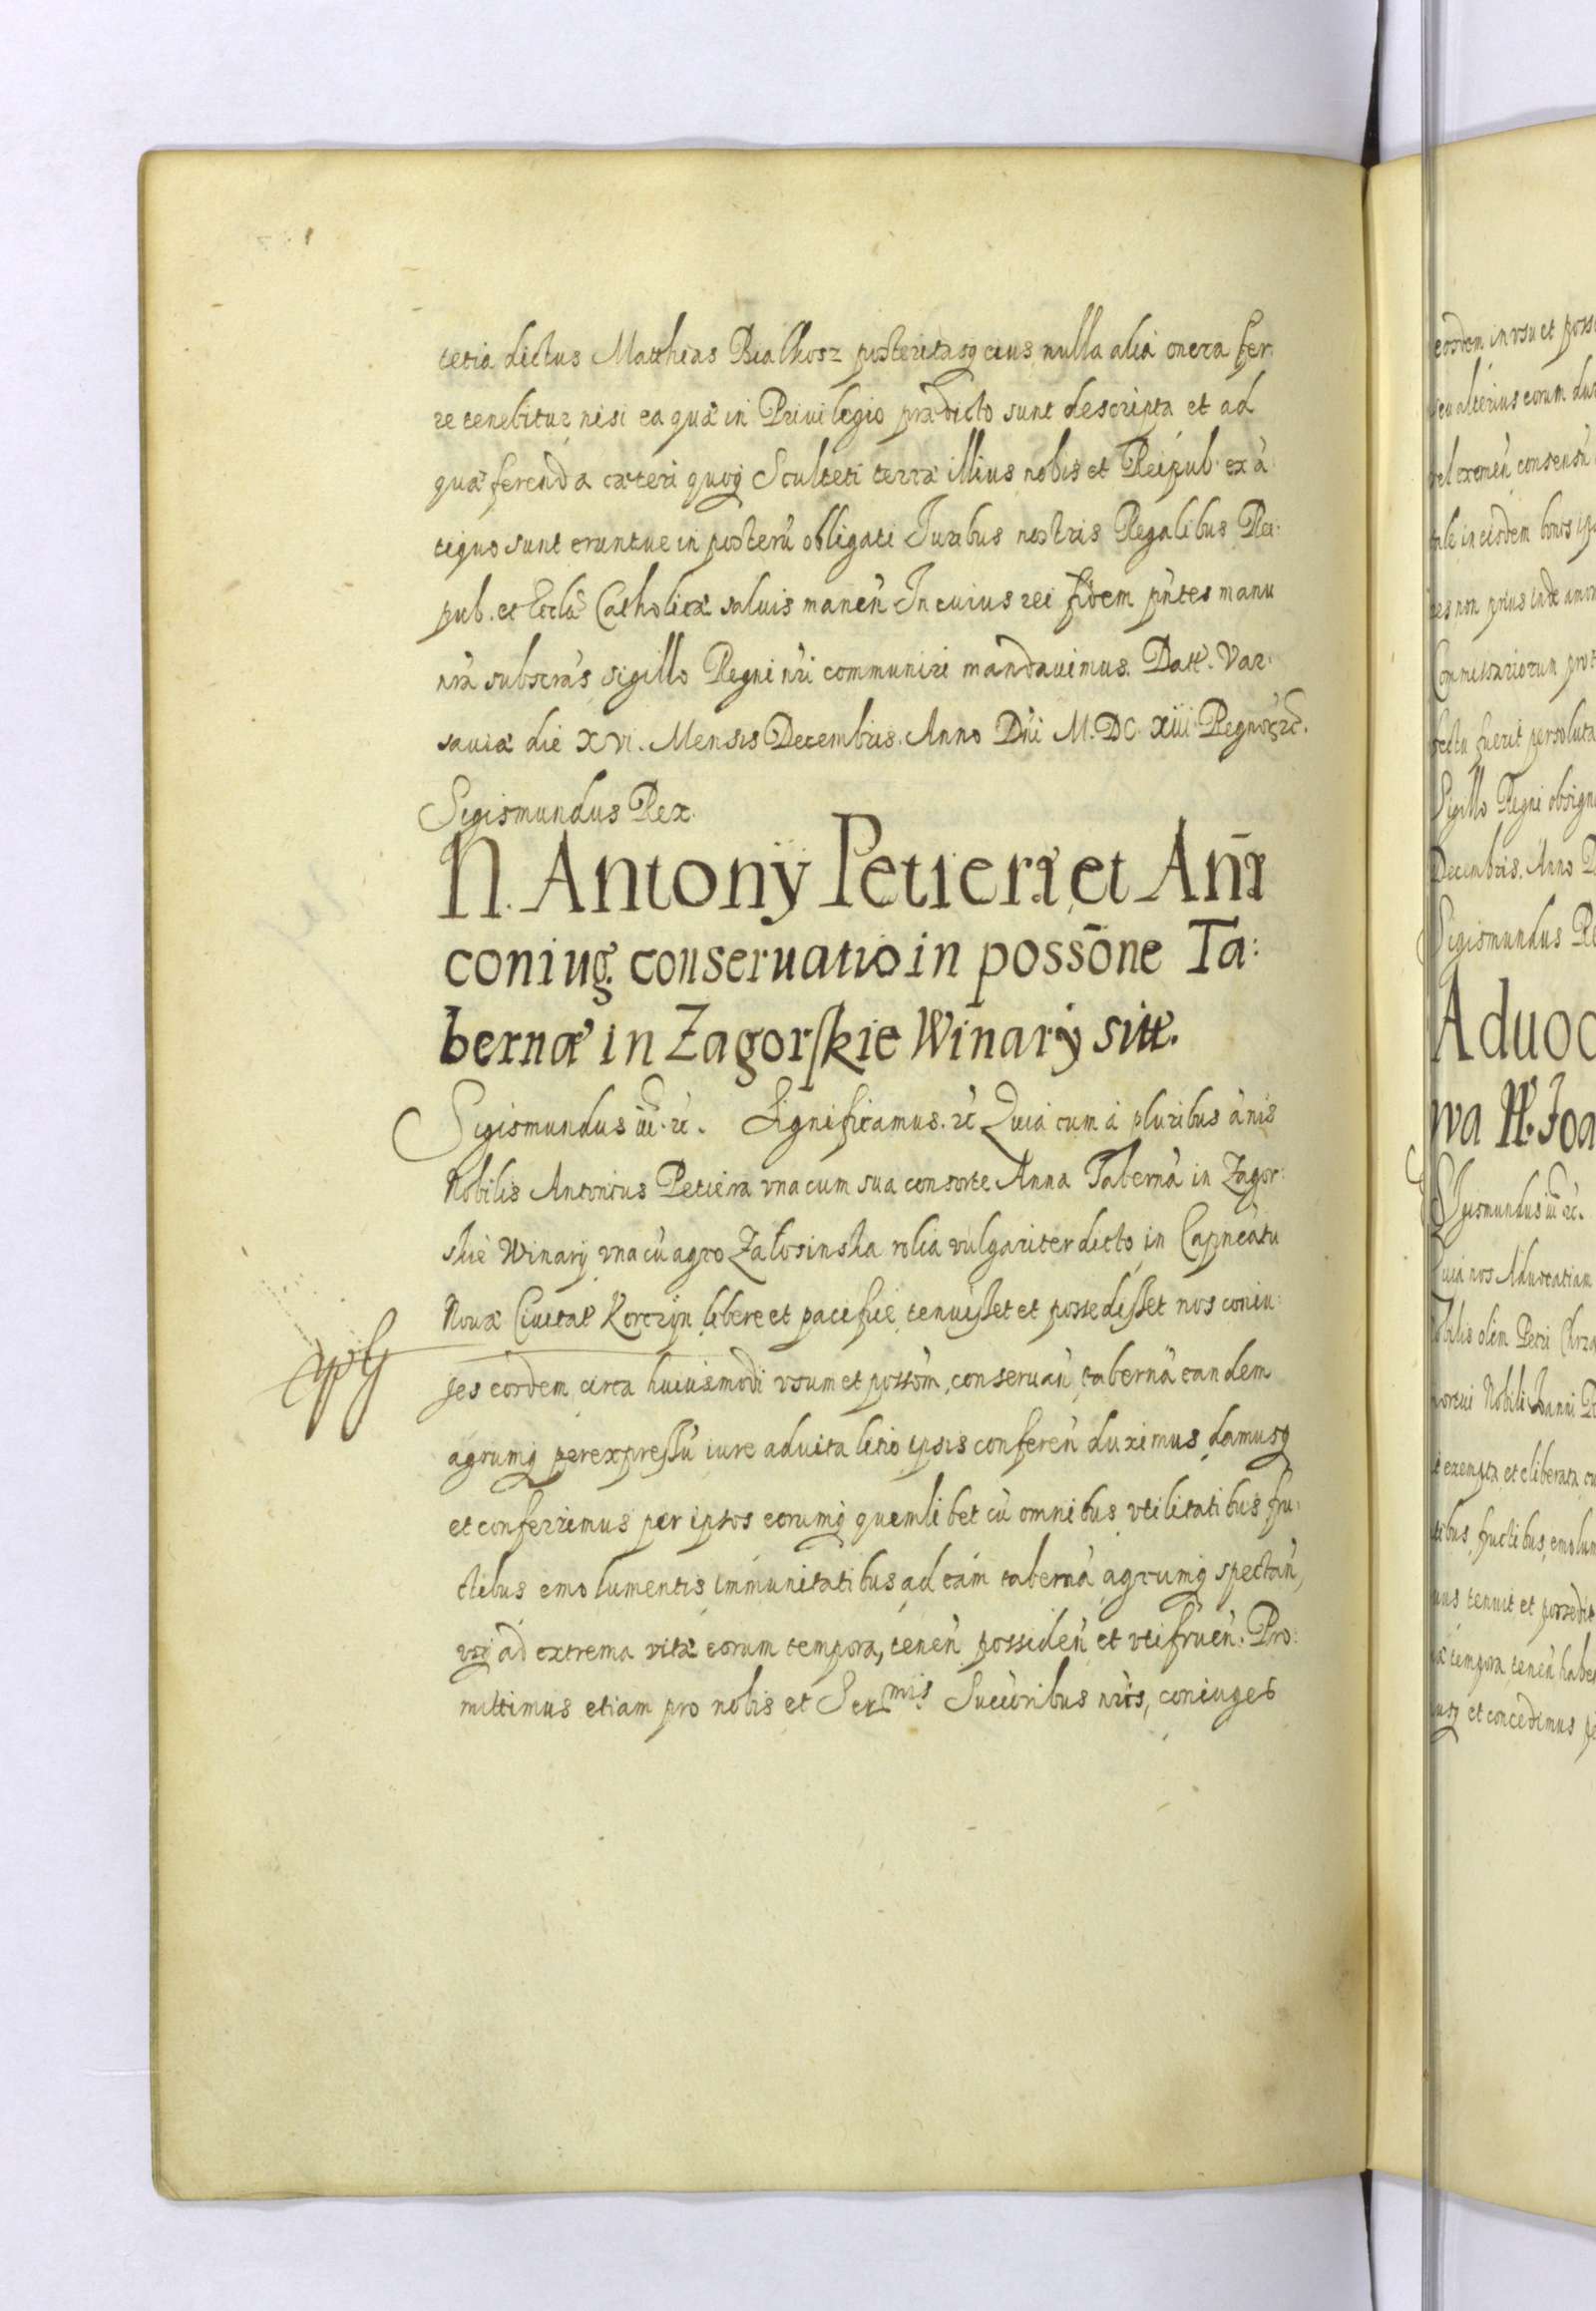 tetia dictus Matthias Bialkosz posteritasq eius nulla alia onera fer:
re tenebitur nisi ea quæ in Priuilegio prædicto sunt descripta et ad
quæ ferenda cæteri quoq Sculteti terræ illius nobis et Reipub. ex ã
tiquo sunt eruntue in posterũ obligati Iuribus nostris Regalibus Rei:
pub. et Eccliæ Catholicæ saluis maneñ In cuius rei fidem pñtes manu
nrã subscras sigillo Regni nri communiri mandauimus. Datt. Var:
sauiæ die XVI. Mensis Decembris. Anno Dñi M.DC.XIII. Regnor. etc.
Sigismundus Rex.
N. Antonÿ Petieri et Añæ
coniug. conseruatio in possõne Ta:
bernæ in Zagorskie Winarÿ sitæ.
Sigismundus iii. etc. Significamus. etc Quia cum à pluribus ãnis
Nobilis Antonius Petiera vna cum sua consorte Anna Tabernã in Zagor:
skie Winarÿ vna cũ agro Zatosinska rolia vulgariter dicto in Capneatu
Nouæ Ciuitat Korczÿn libere et pacifice tenuisset et possedisset nos coniu:
ges eosdem circa huiusmodi vsum et possom, conseruañ tabernã eandem
agrumq per expressũ iure aduitalitio ipsis confereñ duximus damusq
et conferrimus per ipsos eorumq quemlibet cũ omnibus vtilitatibus fru:
ctibus emolumentis immunitatibus ad eam tabernã agrumq spectañ,
vsq ad extrema vitæ eorum tempora, teneñ possideñ et vtifrueñ. Pro:
mittimus etiam pro nobis et Ser.mis Succoribus nris, coniuges
eosdem in vsu et poss
seu alterius eorum
consensũ
in eisdem bonis
non prius inde
Commissariorum
fuerit persoluta
Sigillo Regni obsign
Decembris. Anno
Sigismundus Re
Aduoc
wa N. Joa
Sigismundus iii etc.
nos Aduocatiam
olim Petri
Nobili Joanni
exempta et cliberata
fructibus, emolum
tenuit et possedit
tempora teneñ habe
et concedimus